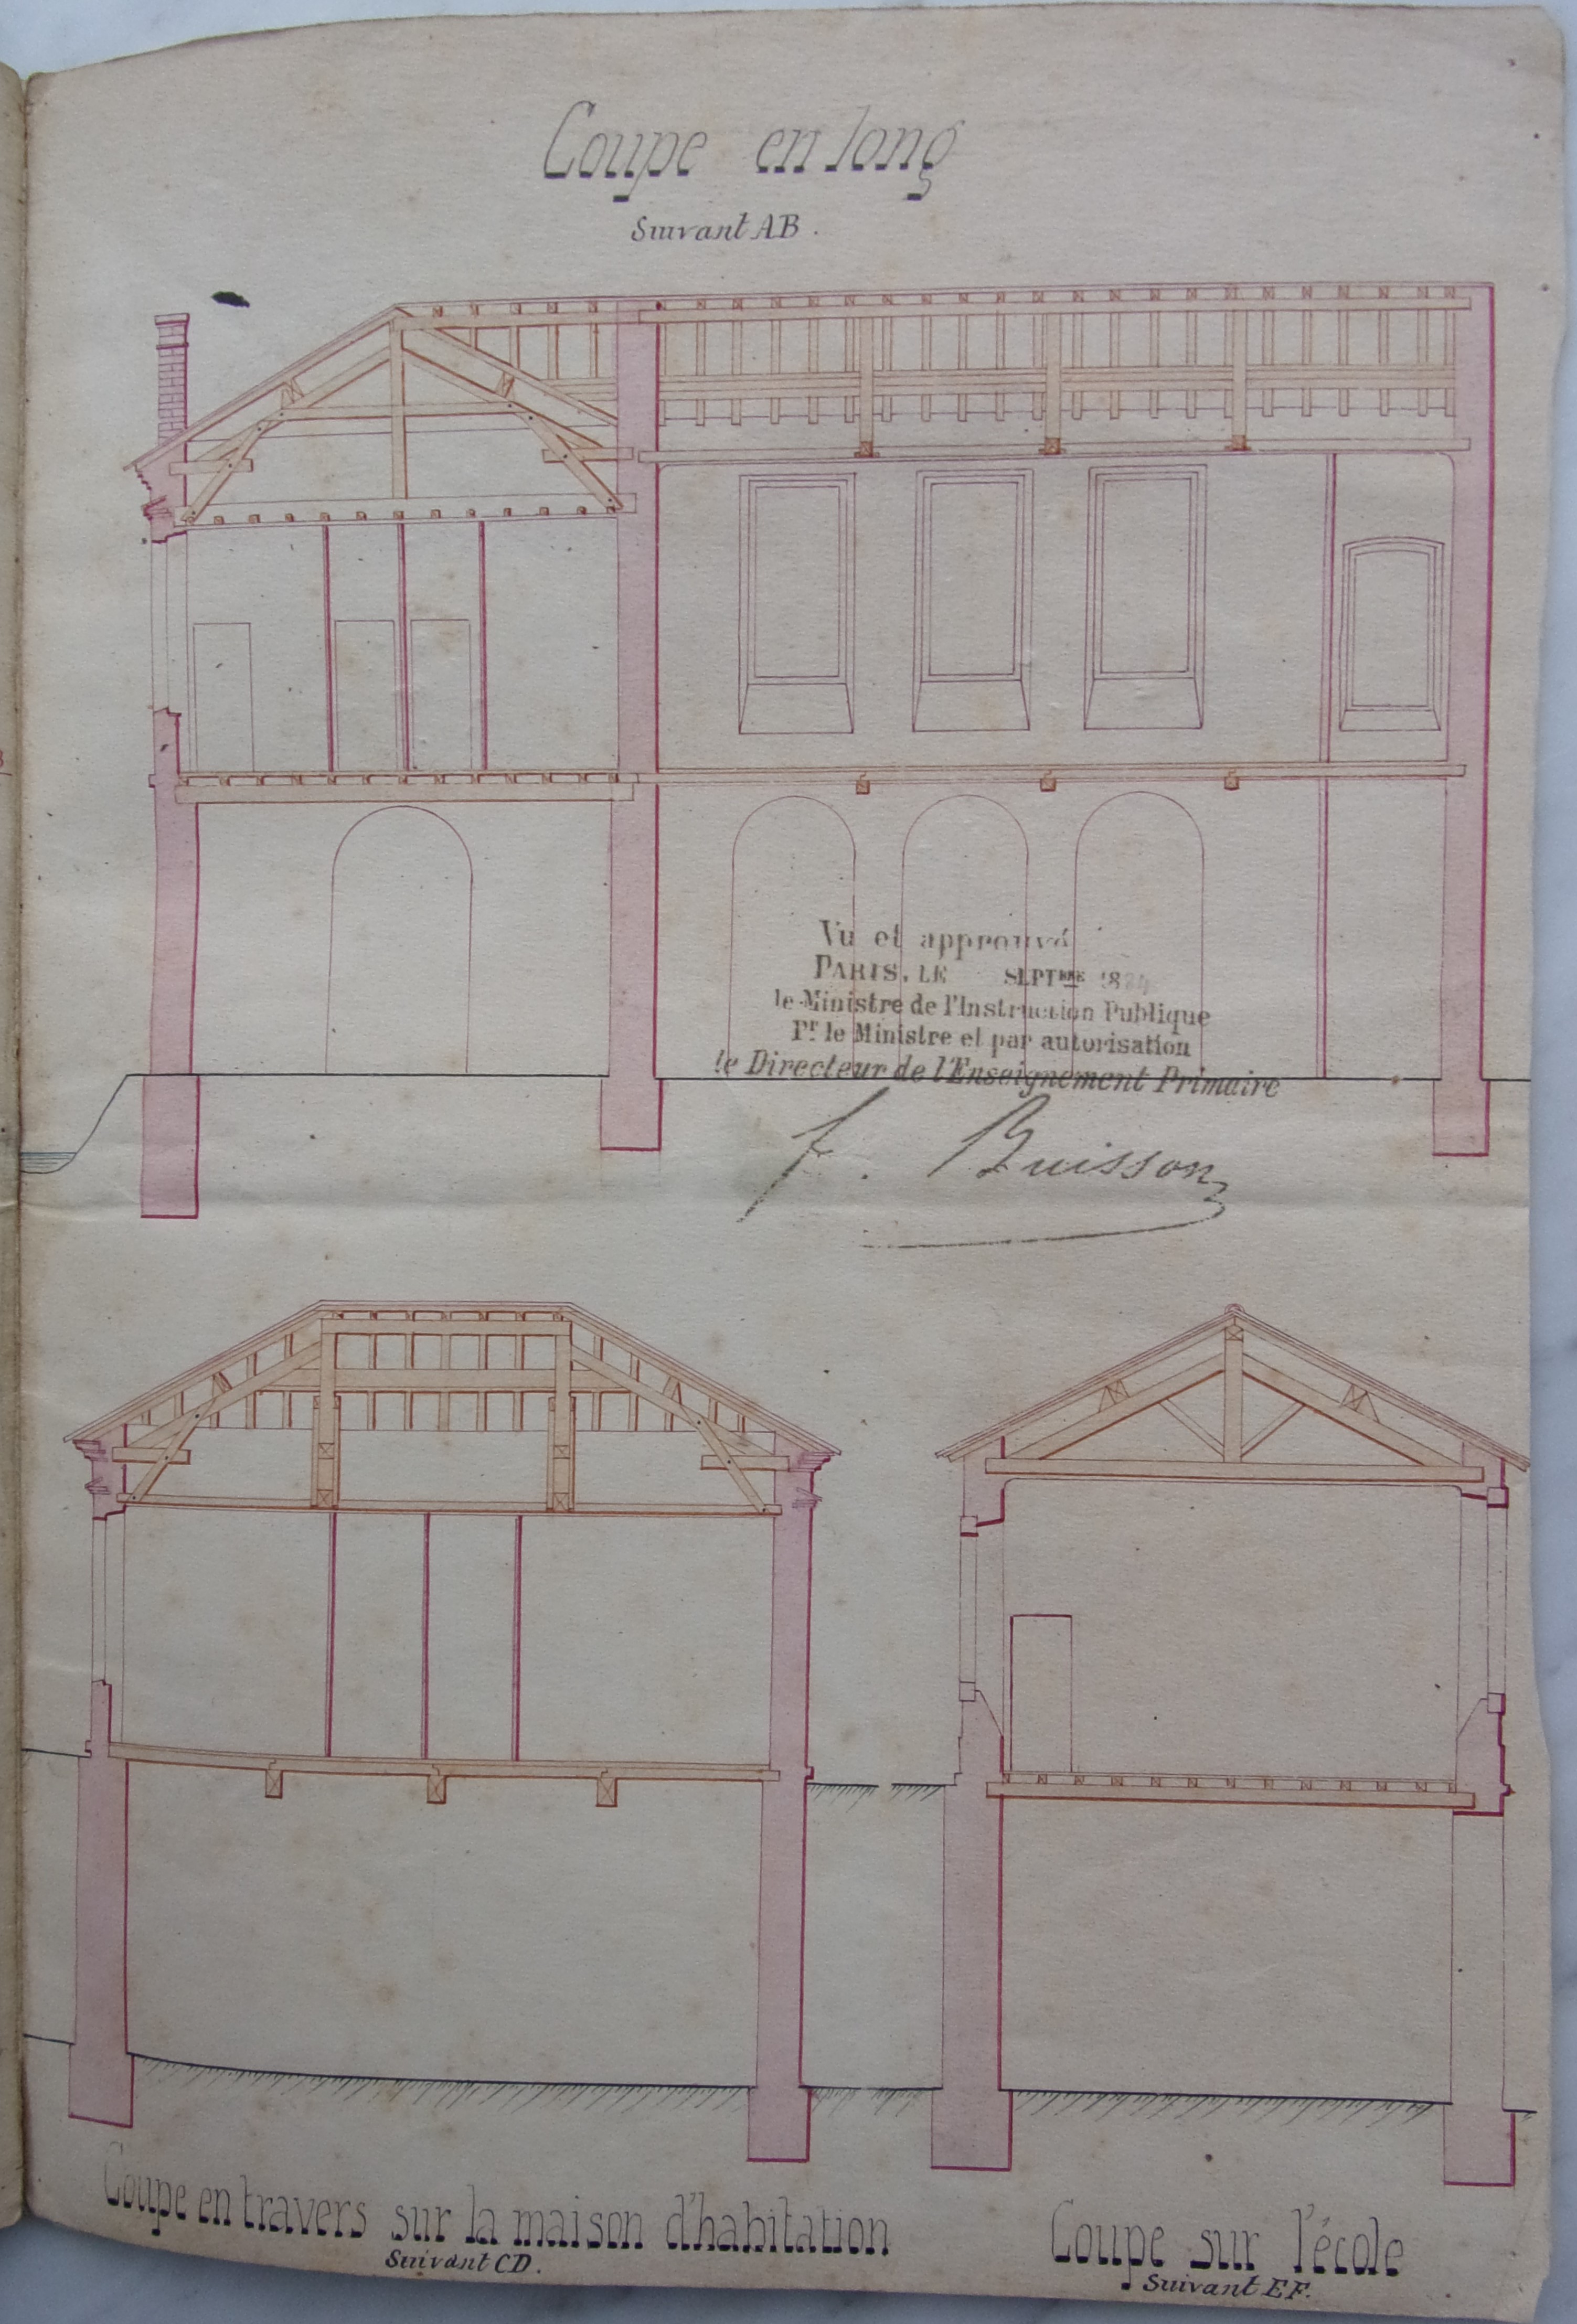 Coupe en long
Suivant AB.
Vu et approuvé
PARIS, LE SEPTBRE 188
le Ministre de l'Instruction Publique
Pr le Ministre et par autorisation
le Directeur de l'Enseignement Primaire
f. Buisson
Coupe en travers sur la maison d'habitation
Suivant CD.
Coupe sur l'école
Suivant EF.